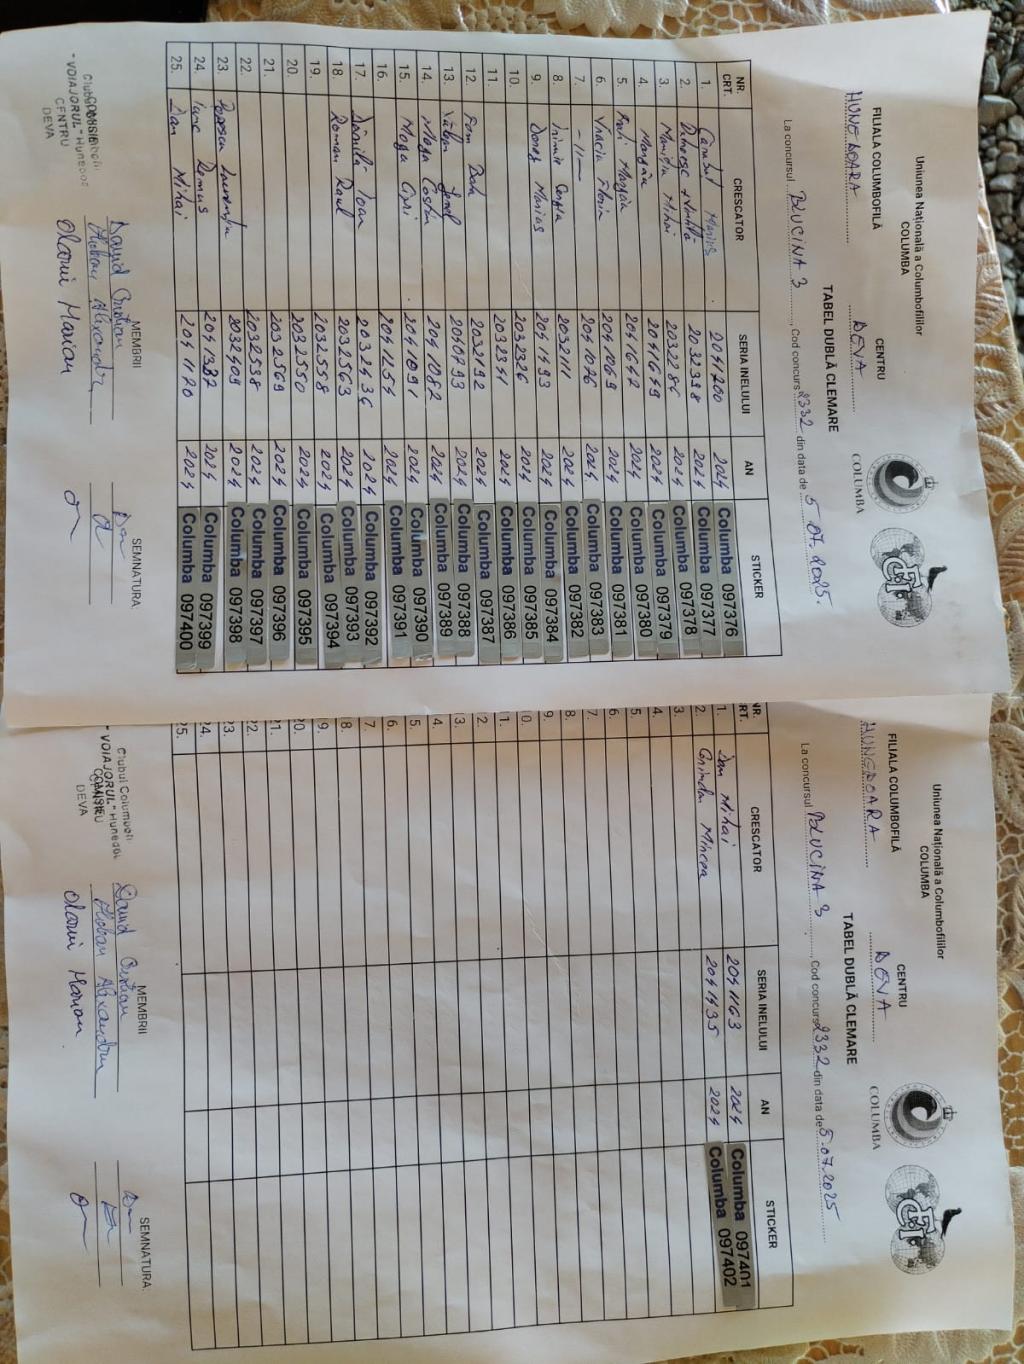 Uniunea Națională a Columbofililor
COLUMBA
FILIALA COLUMBOFILĂ
CENTRU
HUNEDOARA
DEVA
COLUMBA
TABEL DUBLĂ CLEMARE
La concursul BLUCINA 3, Cod concurs 2332 din data de 5.07.2025.
NR. CRT. CRESCATOR SERIA INELULUI AN STICKER
1. Marius 2041200 2024 Columba 097376
2. 2032398 2024 Columba 097377
3. Mihai 2032286 2024 Columba 097378
4. 2041649 2024 Columba 097379
5. 2041642 2024 Columba 097380
6. Florin 2041069 2024 Columba 097381
7. -11- 2041026 2024 Columba 097383
8. 2032111 2024 Columba 097382
9. Marius 2041493 2024 Columba 097384
10. 2032326 2024 Columba 097385
11. 2032341 2024 Columba 097386
12. 2032192 2024 Columba 097387
13. 2040793 2024 Columba 097388
14. Moga Costin 2041082 2024 Columba 097389
15. Moga Cipri 2041091 2024 Columba 097390
16. 2041254 2024 Columba 097391
17. Dănilă Ioan 2032436 2024 Columba 097392
18. Roman Raul 2032563 2024 Columba 097393
19. 2032558 2024 Columba 097394
20. 2032550 2024 Columba 097395
21. 2032569 2024 Columba 097396
22. 2032538 2024 Columba 097397
23. Popescu 2032409 2024 Columba 097398
24. Iunc Remus 2024 Columba 097399
25. Dan Mihai 2041170 2024 Columba 097400
MEMBRII
SEMNATURA:
David Cristian
Hoban Alexandru
Olariu Marian
"VOIAJORUL" Hunedoara
CENTRU
DEVA
Uniunea Națională a Columbofililor
COLUMBA
FILIALA COLUMBOFILĂ
CENTRU
HUNEDOARA
DEVA
COLUMBA
TABEL DUBLĂ CLEMARE
La concursul BLUCINA 3, Cod concurs 2332 din data de 5.07.2025
NR. CRT. CRESCATOR SERIA INELULUI AN STICKER
1. Dan Mihai 2041163 2024 Columba 097401
2. Mircea 2041435 2024 Columba 097402
3.
4.
5.
6.
7.
8.
9.
0.
1.
2.
3.
4.
5.
6.
7.
8.
9.
20.
21.
22.
23.
24.
25.
MEMBRII
SEMNATURA:
David Cristian
Hoban Alexandru
Olariu Marian
Clubul Columbofil
"VOIAJORUL" Hunedoara
DEVA